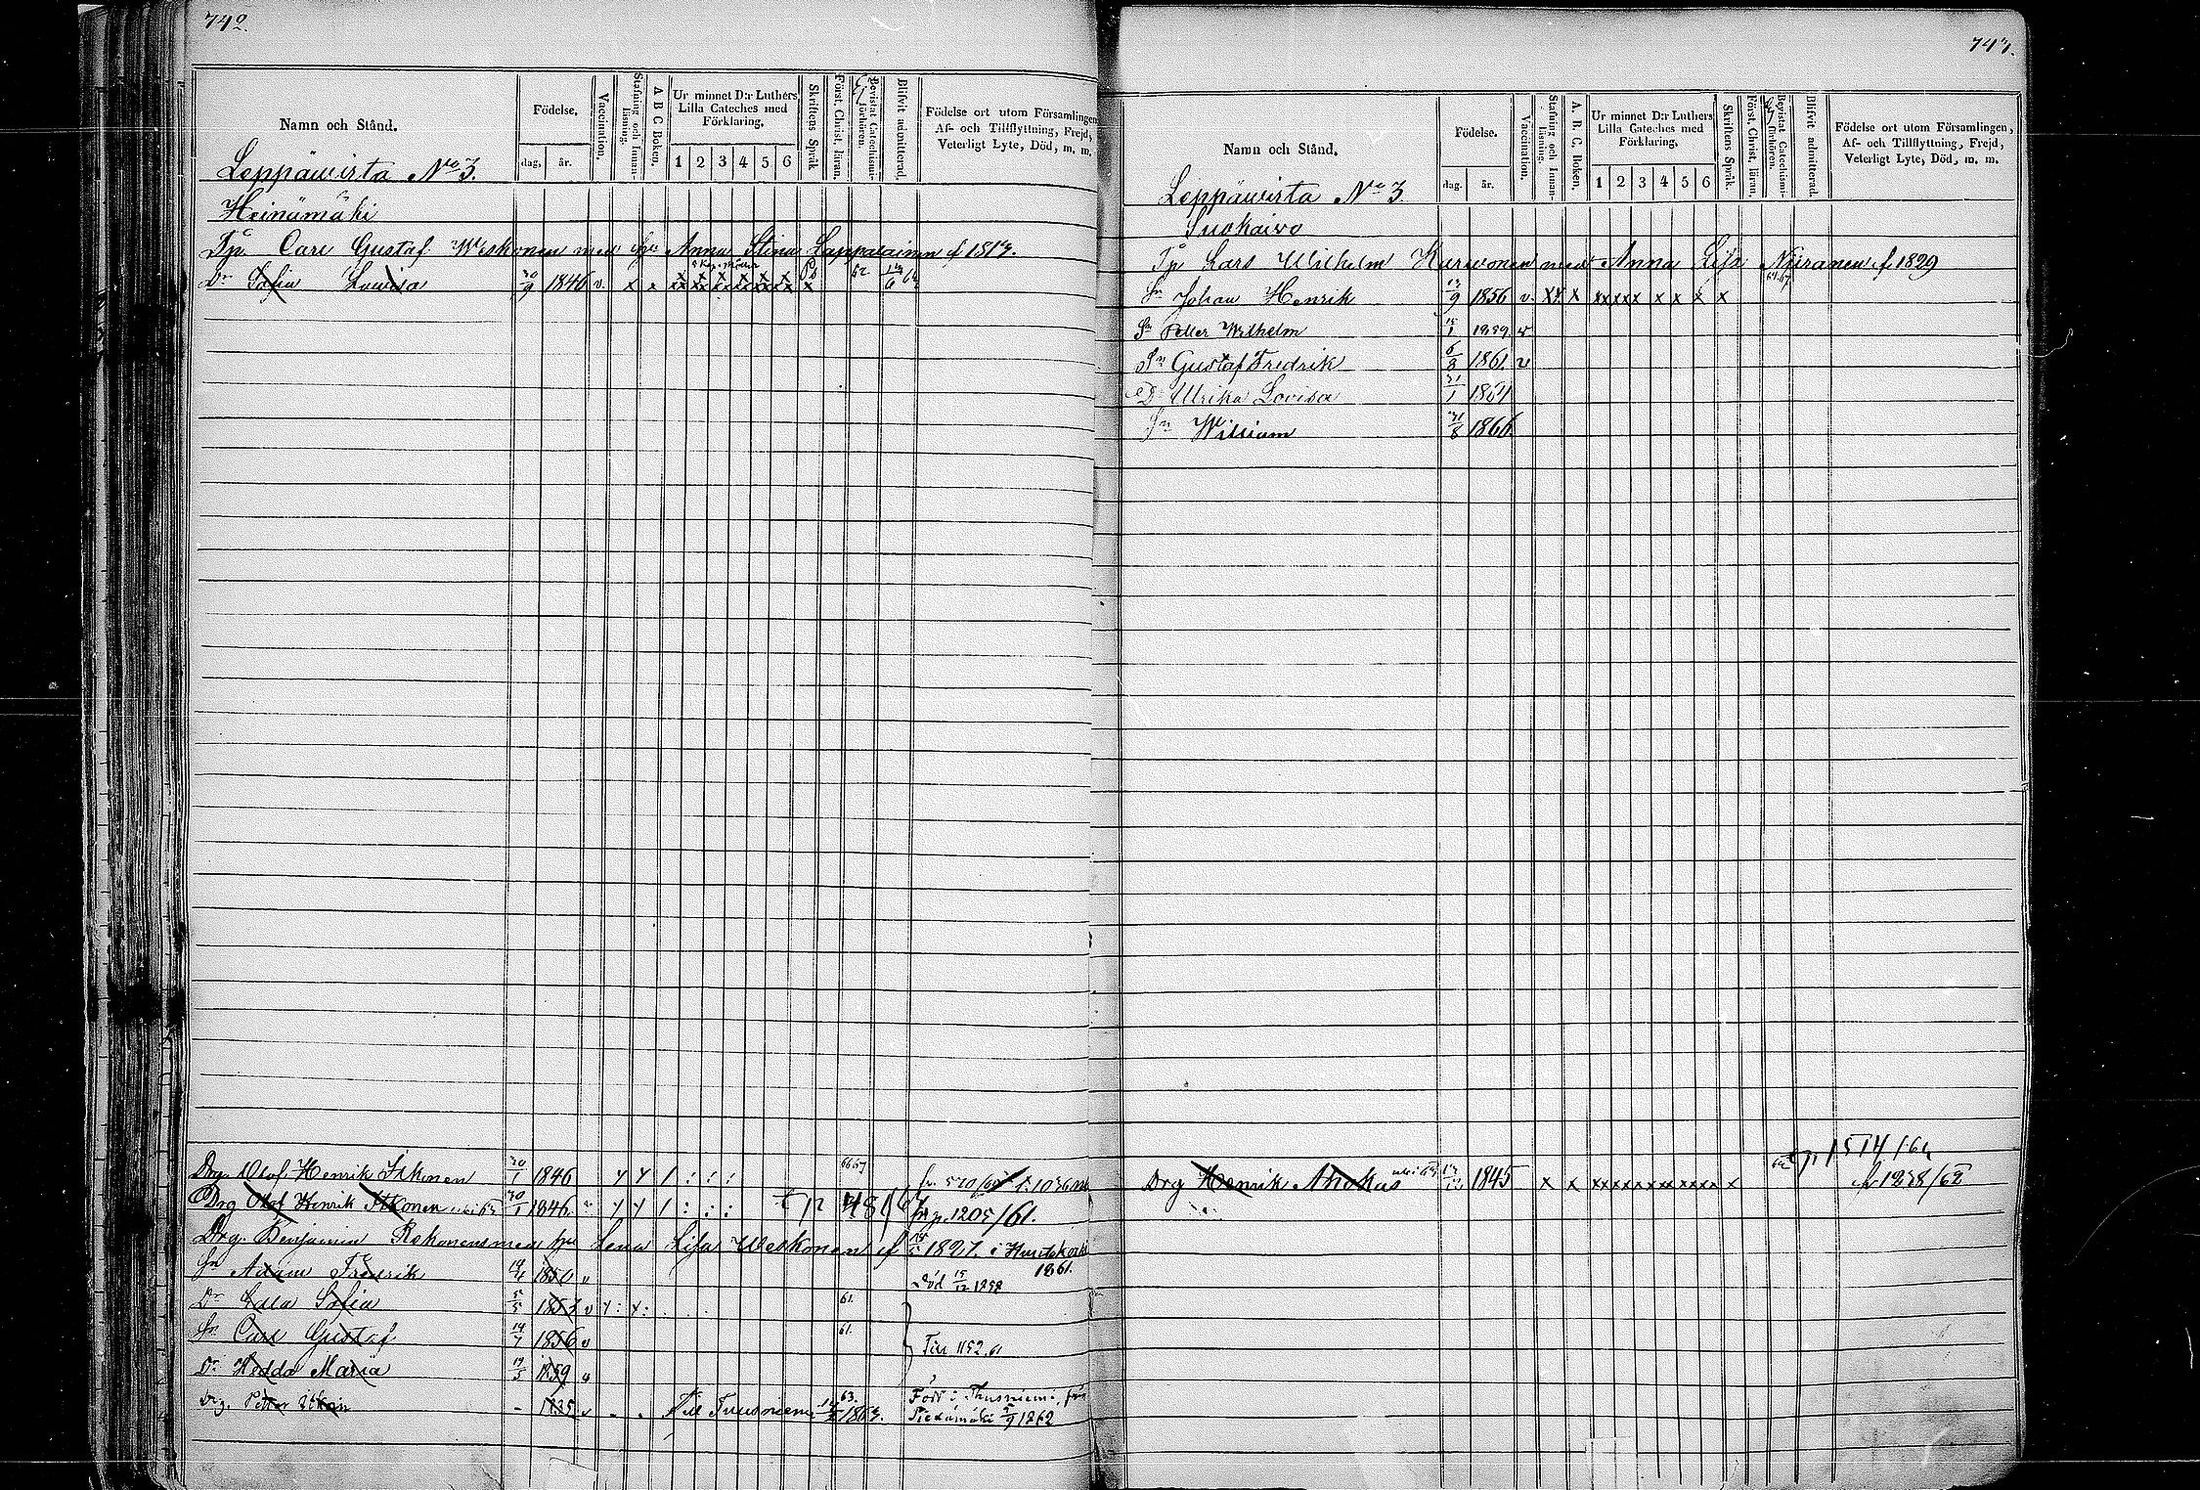 742.
Namn och Stånd.
Födelse.
dag. år.
Vaccination.
Stafning och Innanläsning.
A B C Boken.
Ur minnet D:r Luthers Lilla Cateches med Förklaring.
1 2 3 4 5 6
Skriftens Språk
Först. Christ. läran.
Bevistat Catechismiförhören.
Blifvit admitterad.
Födelse ort utom Församlingen,
Af- och Tillflyttning, Frejd,
Veterligt Lyte, Död, m. m.
Leppäwirta No 3.
Heinämäki
Tp. Carl Gustaf Weskonen med hu Anna Stina Lappalainen f 1813.
Dr Sofia Lovisa 30/9 1846 v. x x x x x x x x x
Drg. Olof Henrik Itkonen 30/1 1846 66 67
Drg Olof Henrik Itkonen 30/1 1846 fr p. 1205/61.
Drg. Benjamin Rekonens med hu Lena Lisa Weskonen f 1827. i
1861.
Sn Adam Fredrik 1850 v Död 15/12 1858
Dr Edla Sofia 5/5 1853 v 61.
Sn Carl Gustaf 14/7 1856 v 61. Till 1152.61
Dr Hedda Maria 19/3 1859 v
Drg. Petter - 1835 v Till Tuusniemi 1863. 63. Född i Thusniemi, från
1862
743.
Namn och Stånd.
Födelse.
dag. år.
Vaccination.
Stafning och Innanläsning.
A. B. C. Boken.
Ur minnet D:r Luthers Lilla Cateches med Förklaring.
1 2 3 4 5 6
Skriftens Språk.
Först. Christ. läran.
Bevistat Catechismiförhören.
Blifvit admitterad.
Födelse ort utom Församlingen,
Af- och Tillflyttning, Frejd,
Veterligt Lyte, Död, m. m.
Leppäwirta No 3.
Suokaivo
Tp Lars Wilhelm Karvonen med Anna Lisa Niiranen f 1829
Sn Johan Henrik 13/9 1856 v. xx x xxxxx x x x x
Sn Petter Wilhelm 15/1 1859 v
Sn Gustaf Fredrik 6/8 1861 v
D Ulrika Lovisa 31/1 1864
Sn William 31/8 1866.
p 1514/64
Drg Henrik Ahokas 1845 x x xxxxxxxxxx x fr 1238/62